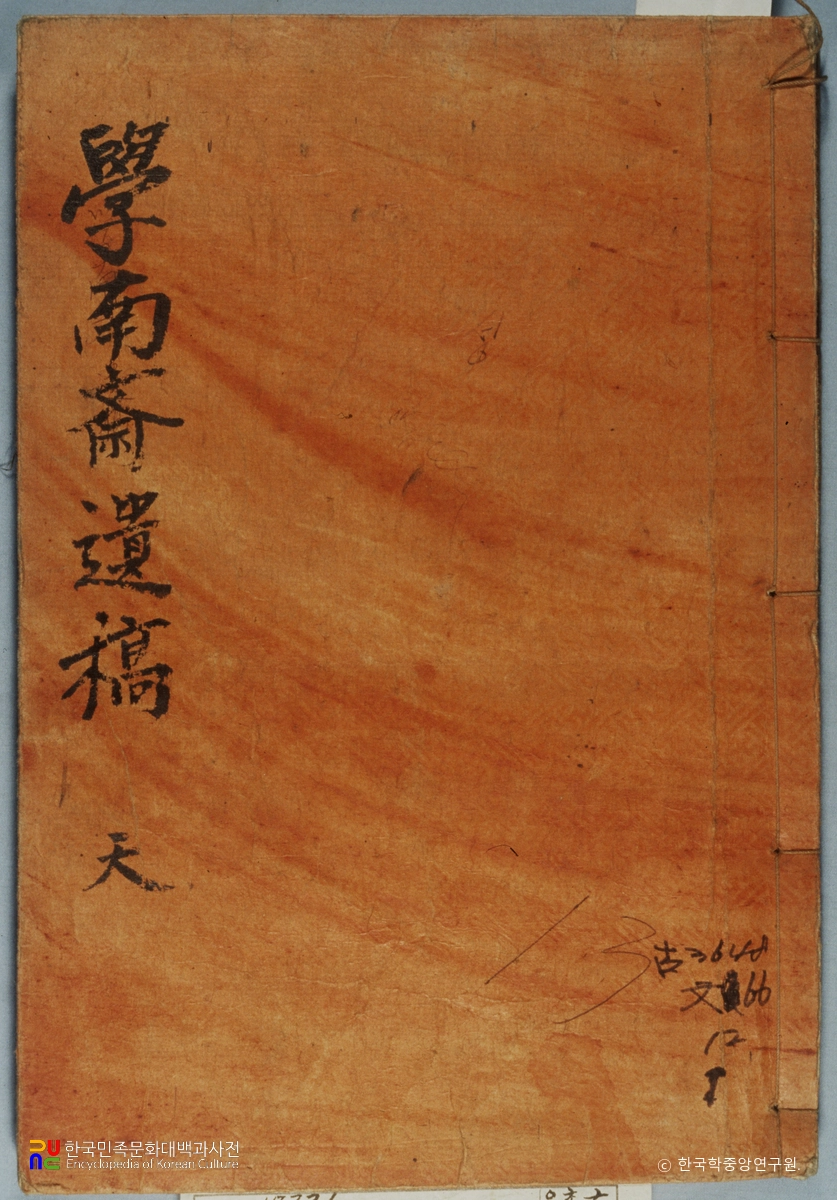 學南齋遺稿 天
古3648
文 66
12
1
한국민족문화대백과사전
Encyclopedia of Korean Culture
© 한국학중앙연구원